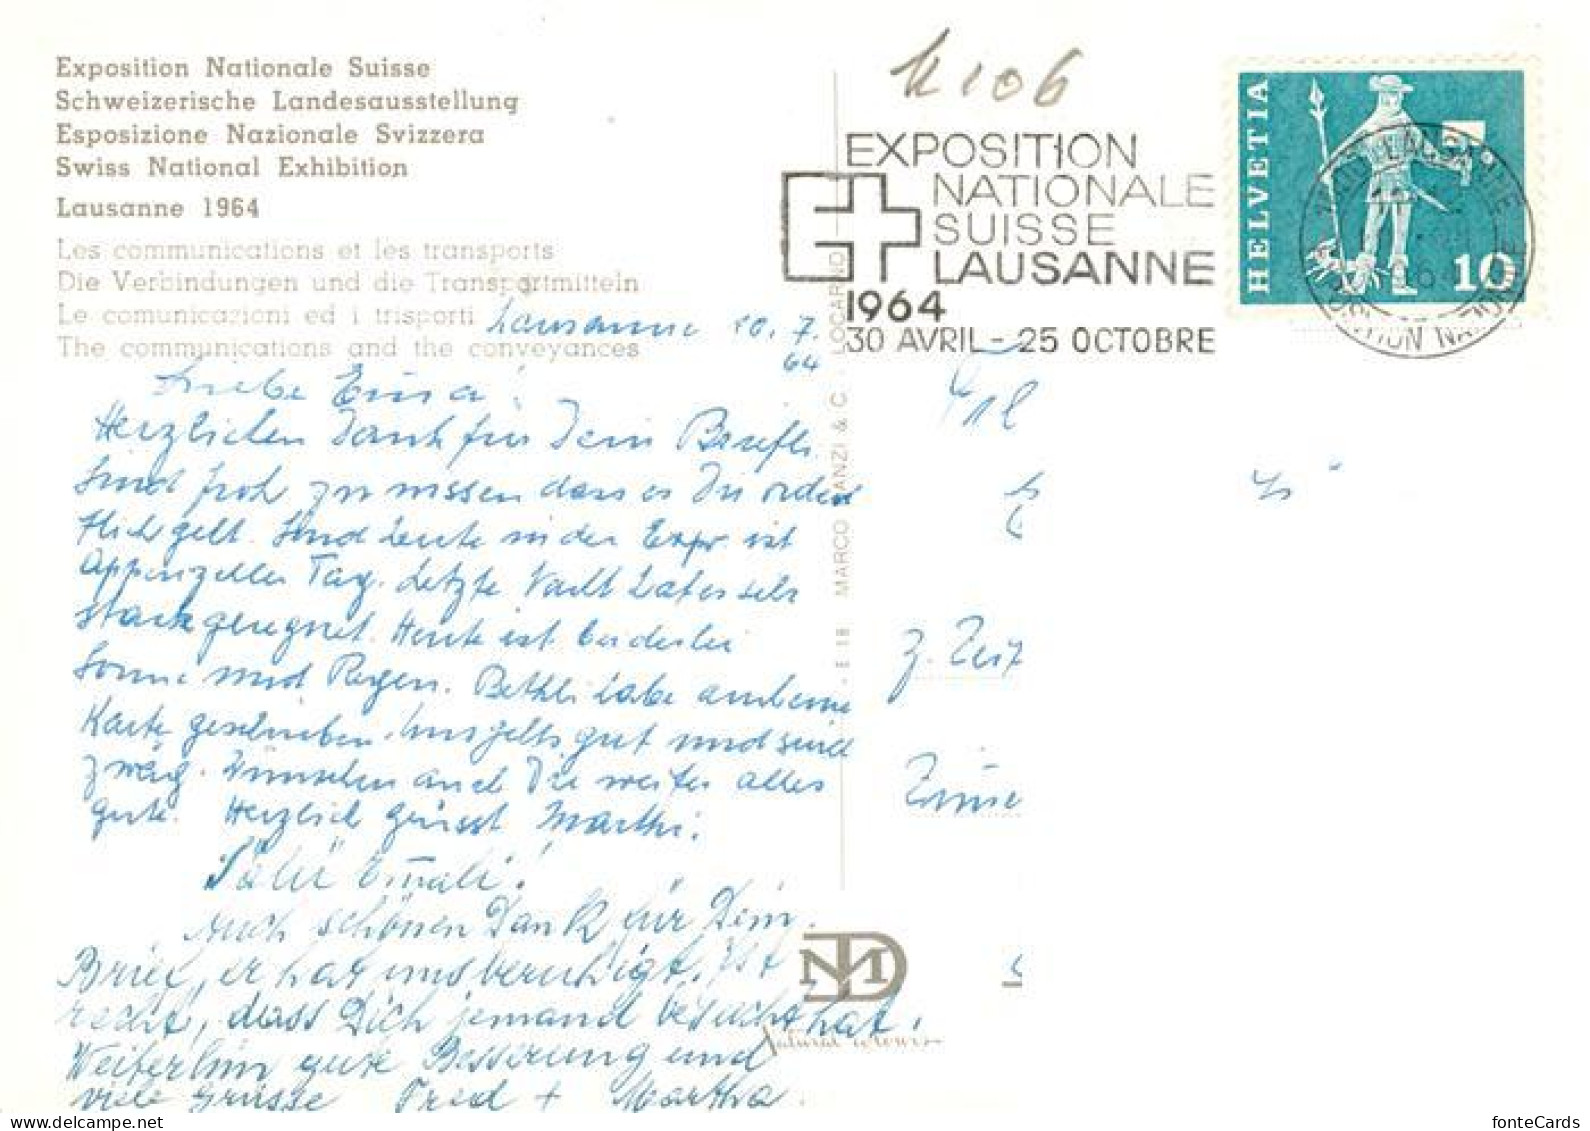 Exposition Nationale Suisse
Schweizerische Landesausstellung
Esposizione Nazionale Svizzera
Swiss National Exhibition
Lausanne 1964
Les communications et les transports
Die Verbindungen und die Transportmitteln
Le comunicazioni ed i trisporti
The communications and the conveyances
Lausanne 10. 7.
64
Liebe Emma!
Herzlichen Dank für Dein Briefli
Sind froh zu wissen dass es Dir orden
tlich geht. Sind heute in der Expo. ist
Appenzeller Tag. Letzte Nacht hat es sehr
stark geregnet. Heute ist beiderlei
Sonne und Regen. Bethli habe auch eine
Karte geschrieben. Uns gehts gut und sind
zwäg. Wünschen auch Dir weiter alles
gute. Herzlich grüsst Marthi.
Salü Emali!
Auch schönen Dank für Dein
Brief, er hat uns beruhigt. Ist
recht, dass Dich jemand besucht hat.
Weiterhin gute Besserung und
viele Grüsse Fred + Martha.
E 18 MARCO ANZI & C. LOCARNO
106
EXPOSITION
NATIONALE
SUISSE
LAUSANNE
1964
30 AVRIL - 25 OCTOBRE
HELVETIA
10
LAUSANNE
EXPOSITION NATIONALE
z. Zeit
MD
Natural colours
fonteCards